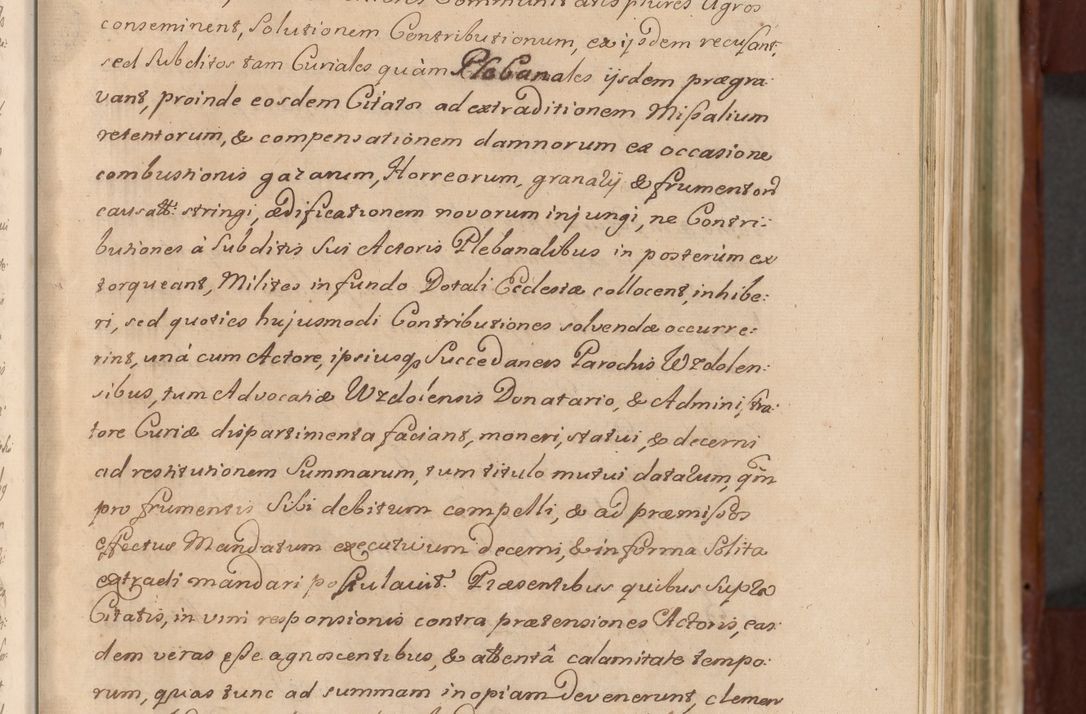 Communitatis plures Agros
conseminent, Solutionem Contributionum, ex ijsdem recusant,
sed Subditos tam Curiales quàm Plebanales ijsdem prægra-
vant, proinde eosdem Citatos ad extraditionem Missalium
retentorum, & compensationem damnorum ex occasione
combustionis gazarum, Horreorum, granarij & frumentorum
causatt: stringi, ædificationem novorum injungi, ne Contri:
butiones à Subditis Sui Actoris Plebanalibus in posterùm ex
torqueant, Milites in fundo Dotali Ecclesiæ collocent, inhibe:
ri, sed quoties hujusmodi Contributiones solvendæ occurre:
rint, unà cum Actore, ipsiusq Succedaneis Parochis Wzdolen:
sibus, tum Advocatiæ Wzdolensis Donatario, & Administra:
tore Curiæ dispartimenta faciant, moneri, statui, & decerni
ad restitutionem Summarum, tum titulo mutui datarum, qm
pro frumentis Sibi debitum compelli, & ad præmissos
effectus Mandatum executivum decerni, & in forma Solita
extradi mandari postulavit. Præsentibus quibus Supra
Citatis, in vim responsionis contra prætensiones Actoris, eas:
dem veras esse agnoscentibus, & attentâ calamitate tempo:
rum, quas tunc ad summam inopiam devenerunt, clemen